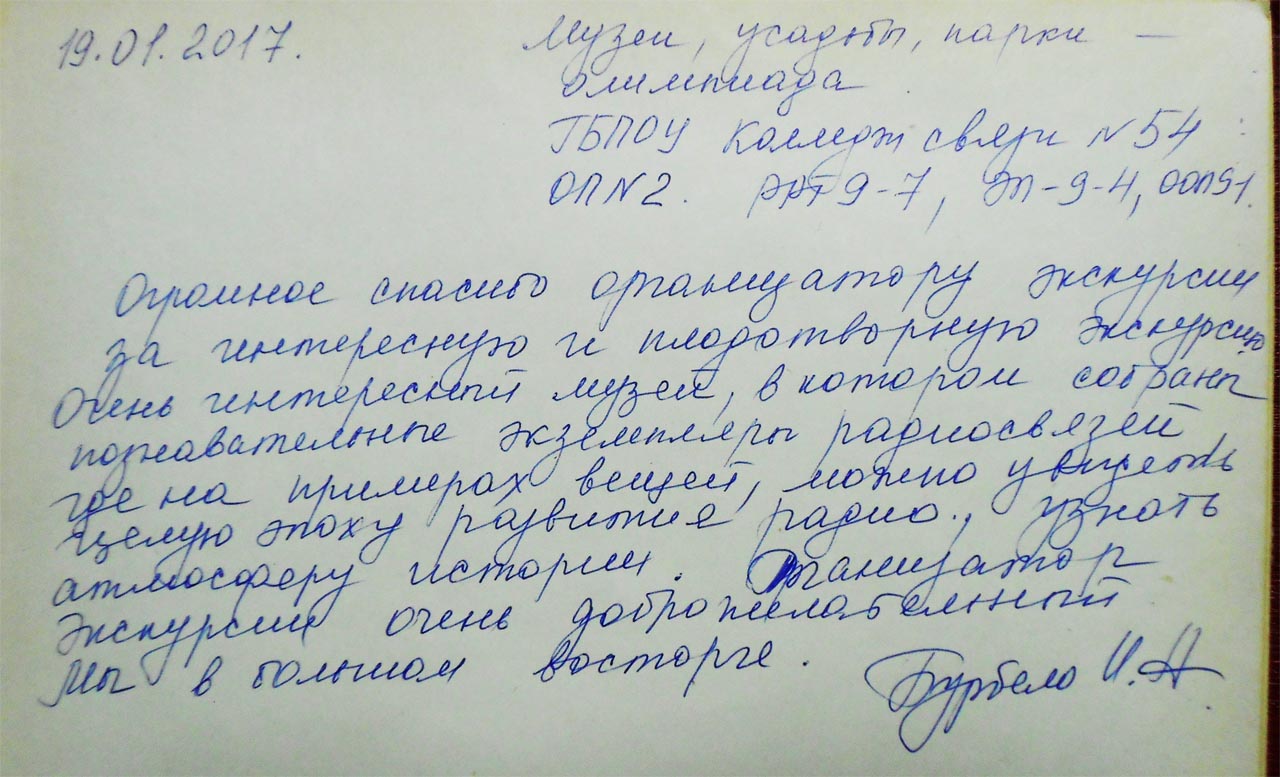 19.01.2017.
Музеи, усадьбы, парки —
олимпиада
ГБПОУ Колледж связи N 54
ОП N2. РРТ 9-7, ЭП-9-4, ООП91.
Огромное спасибо организатору экскурсии
за интересную и плодотворную экскурсию.
Очень интересный музей, в котором собраны
познавательные экземпляры радиосвязей
где на примерах вещей, можно увидеть
целую эпоху развития радио, узнать
атмосферу истории. Организатор
экскурсии очень доброжелательный
Мы в большом восторге.
Бурбело И.А